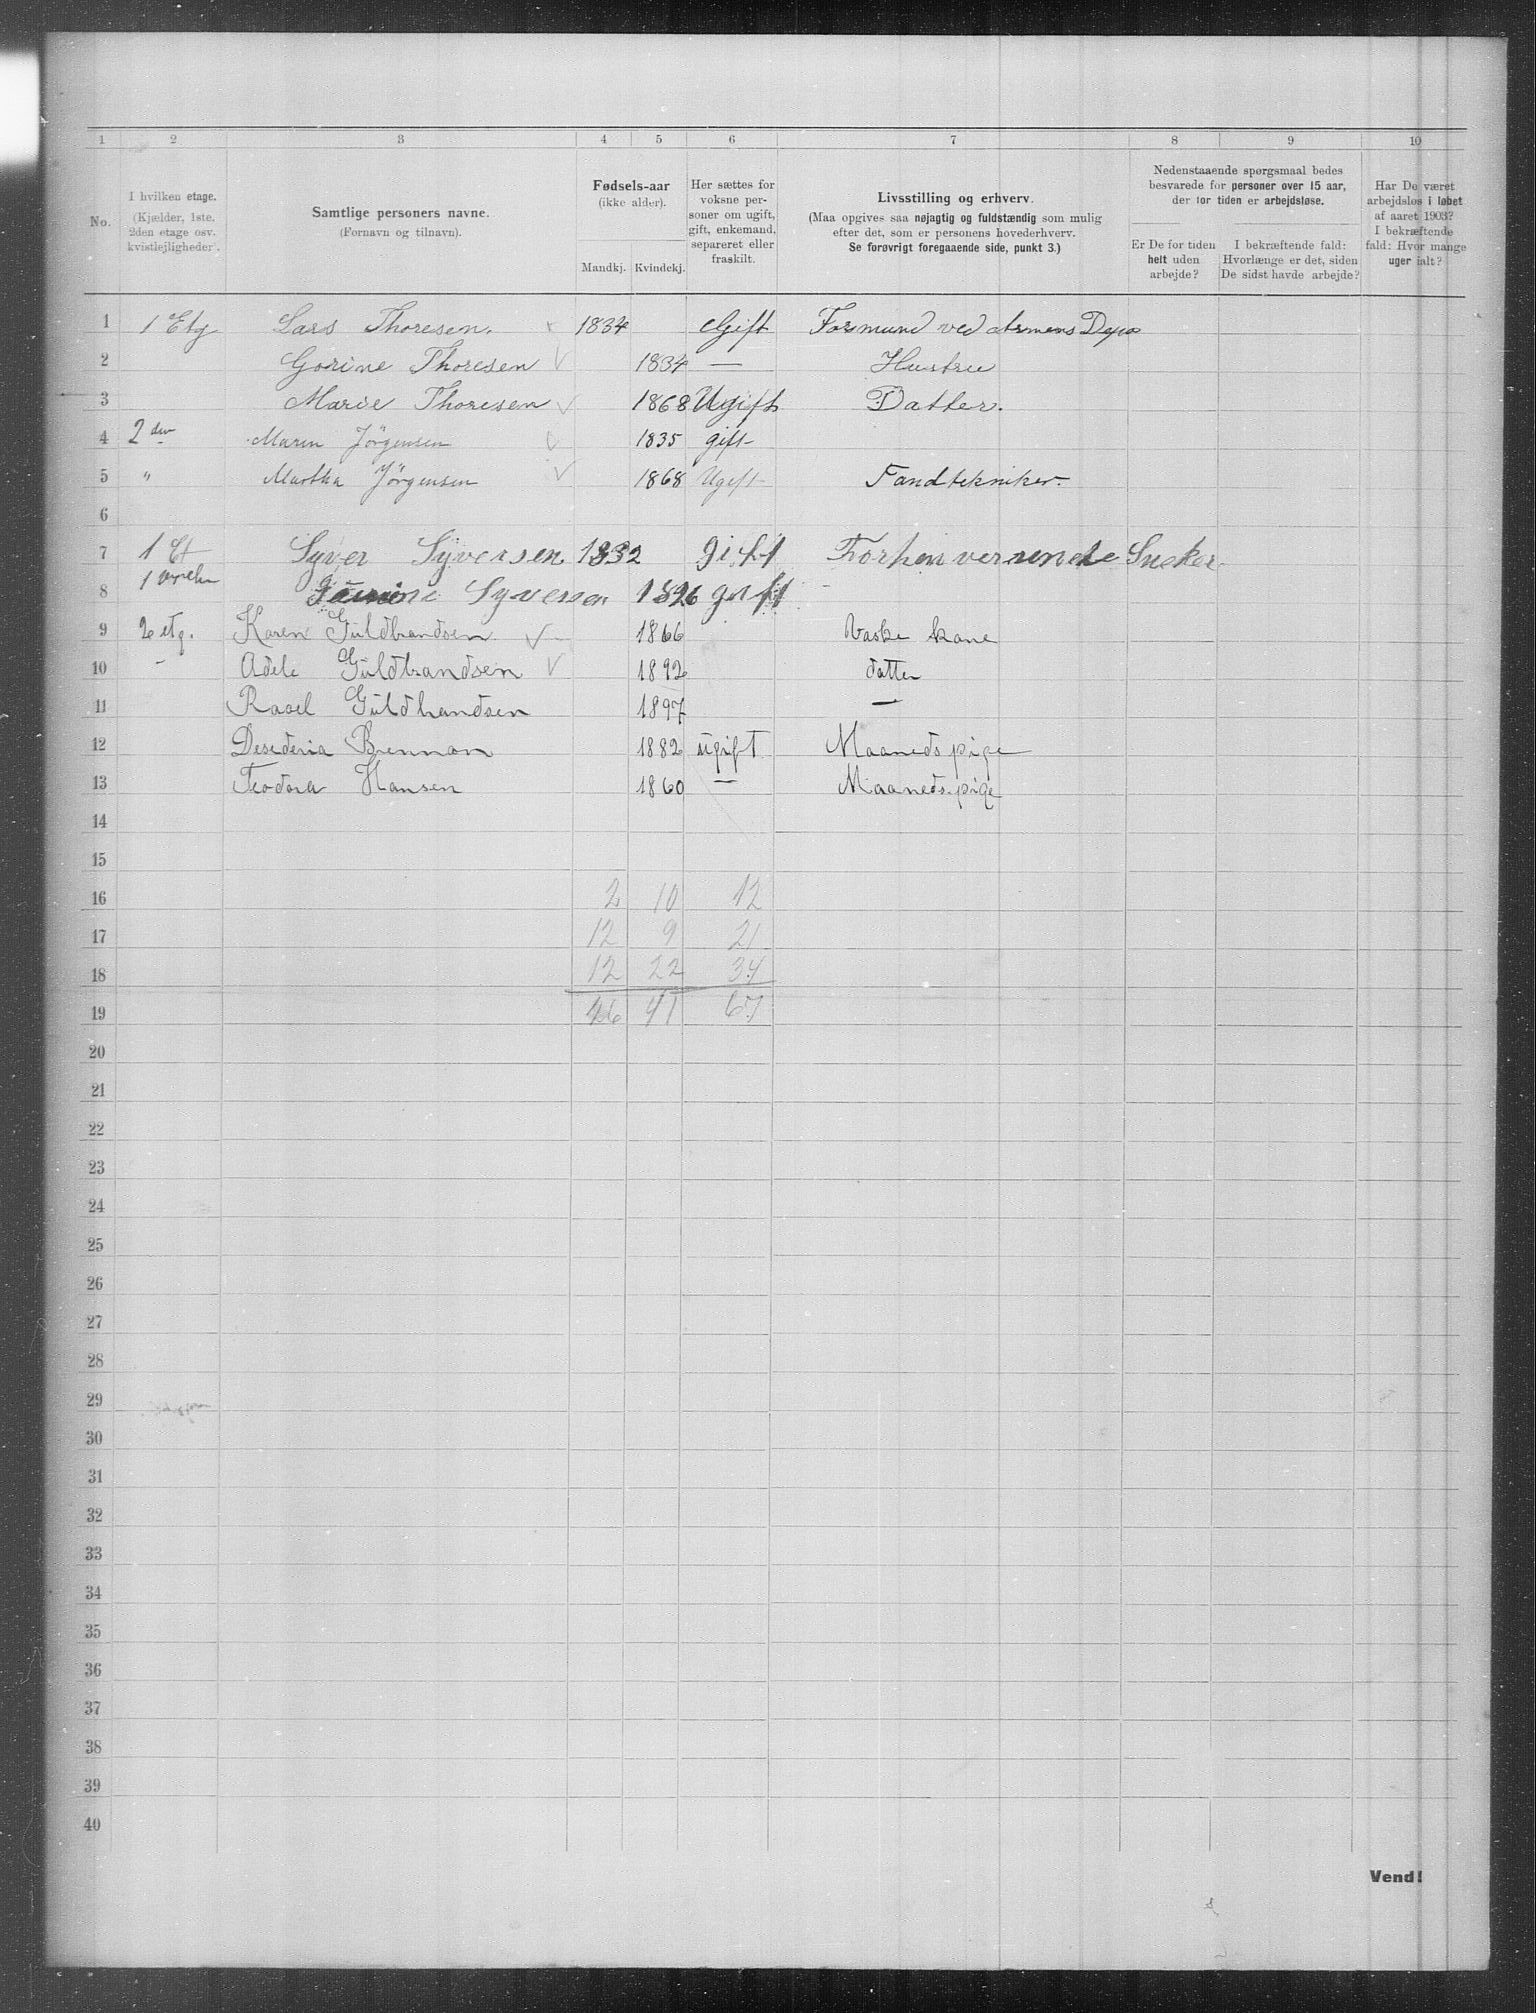 1 2 3 4 5 6 7 8 9 10
No.
I hvilken etage.
(Kjælder, 1ste.
2den etage osv.
kvistlejligheder).
Samtlige personers navne.
(Fornavn og tilnavn).
Fødsels-aar
(ikke alder).
Mandkj. Kvindekj.
Her sættes for
voksne per-
soner om ugift,
gift, enkemand,
separeret eller
fraskilt.
Livsstilling og erhverv.
(Maa opgives saa nøjagtig og fuldstændig som mulig
efter det, som er personens hovederhverv.
Se forøvrigt foregaaende side, punkt 3.)
Nedenstaaende spørgsmaal bedes
besvarede for personer over 15 aar,
der for tiden er arbejdsløse.
Er De for tiden
helt uden
arbejde?
I bekræftende fald:
Hvorlænge er det, siden
De sidst havde arbejde?
Har De været
arbejdsløs i løbet
af aaret 1903?
I bekræftende
fald: Hvor mange
uger ialt?
1 1 Etg Lars Thoresen. 1834 Gift Formund ved Depo
2 Gorine Thoresen 1834 — Hustru
3 Marie Thoresen 1868 Ugift Datter.
4 2den Maren Jörgensen 1835 gift
5 " Martha Jörgensen 1868 Ugift Tandtekniker.
6
7 1 Et Syver Syversen 1832 gift Forhenverende Sneker
8 1 Syversen 1826 gift
9 2 etg. Karen Guldbrandsen 1866 Vaske kone
10 - Adele Guldbrandsen 1892 datter
11 Guldbrandsen 1897 —
12 Desederia Brennan 1882 ugift Maaneds pige
13 Teodora Hansen 1860 — Maaneds.pige
14
15
16 2 10 12
17 12 9 21
18 12 22 34
19 26 41 67
20
21
22
23
24
25
26
27
28
29
30
31
32
33
34
35
36
37
38
39
40
Vend!